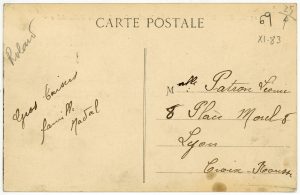 CARTE POSTALE
69
XI-83
Roland
Gros baisers
famille
Nadal
Mlle Patron
8 Place Morel 8
Lyon
Croix-Rousse